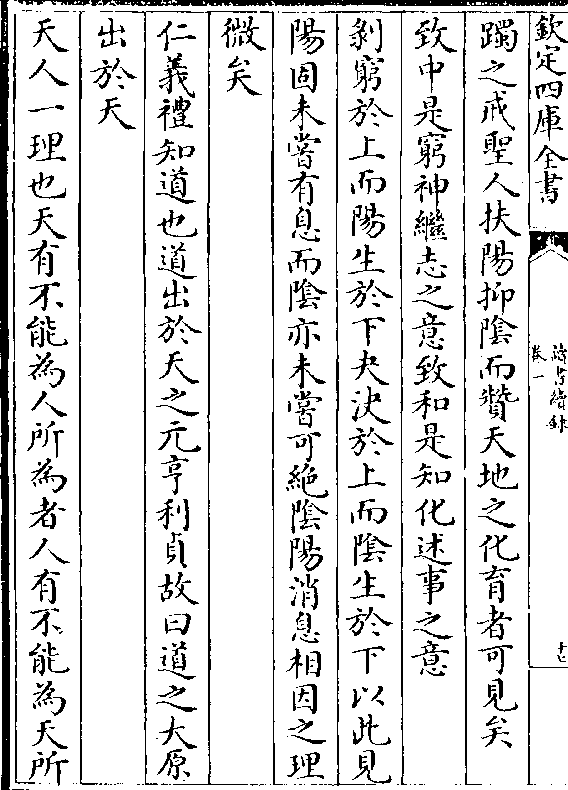 欽定四庫全書
讀書續錄
卷一
十二
躅之戒聖人扶陽抑陰而贊天地之化育者可見矣
致中是窮神繼志之意致和是知化述事之意
剥窮於上而陽生於下夬決於上而陰生於下以此見
陽固未嘗有息而陰亦未嘗可絶陰陽消息相因之理
微矣
仁義禮知道也道出於天之元亨利貞故曰道之大原
出於天
天人一理也天有不能為人所為者人有不能為天所